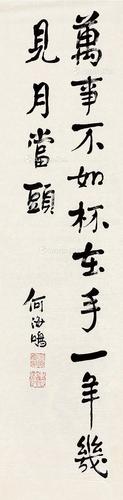 萬事不如杯在手一年幾
見月當頭
何海鳴